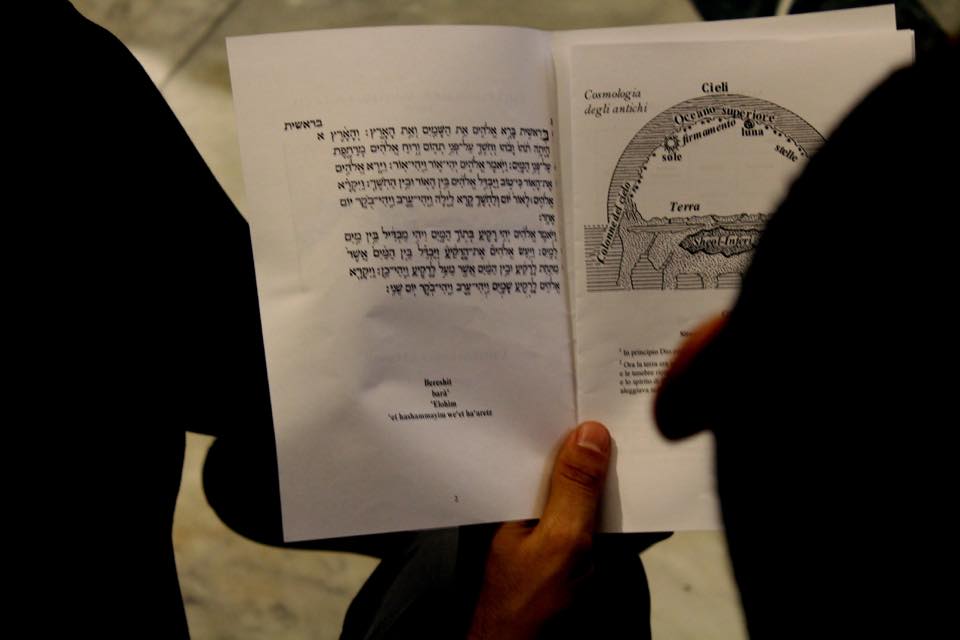 בראשית
א
בְּרֵאשִׁית בָּרָא אֱלֹהִים אֵת הַשָּׁמַיִם וְאֵת הָאָרֶץ׃ וְהָאָרֶץ
הָיְתָה תֹהוּ וָבֹהוּ וְחֹשֶׁךְ עַל־פְּנֵי תְהוֹם וְרוּחַ אֱלֹהִים מְרַחֶפֶת
עַל־פְּנֵי הַמָּיִם׃ וַיֹּאמֶר אֱלֹהִים יְהִי־אוֹר וַיְהִי־אוֹר׃ וַיַּרְא אֱלֹהִים
אֶת־הָאוֹר כִּי־טוֹב וַיַּבְדֵּל אֱלֹהִים בֵּין הָאוֹר וּבֵין הַחֹשֶׁךְ׃ וַיִּקְרָא
אֱלֹהִים לָאוֹר יוֹם וְלַחֹשֶׁךְ קָרָא לָיְלָה וַיְהִי־עֶרֶב וַיְהִי־בֹקֶר יוֹם
אֶחָד׃
וַיֹּאמֶר אֱלֹהִים יְהִי רָקִיעַ בְּתוֹךְ הַמָּיִם וִיהִי מַבְדִּיל בֵּין מַיִם
לָמָיִם׃ וַיַּעַשׂ אֱלֹהִים אֶת־הָרָקִיעַ וַיַּבְדֵּל בֵּין הַמַּיִם אֲשֶׁר
מִתַּחַת לָרָקִיעַ וּבֵין הַמַּיִם אֲשֶׁר מֵעַל לָרָקִיעַ וַיְהִי־כֵן׃ וַיִּקְרָא
אֱלֹהִים לָרָקִיעַ שָׁמָיִם וַיְהִי־עֶרֶב וַיְהִי־בֹקֶר יוֹם שֵׁנִי׃
Bereshit
bara'
'Elohim
'et hashammayim we'et ha'aretz
2
Cosmologia
degli antichi
Cieli
Oceano superiore
firmamento
luna
sole
stelle
Colonne del cielo
Terra
Sheol-Inferi
1 In principio
2 Ora la terra era
e le tenebre
e lo spirito di
aleggiava